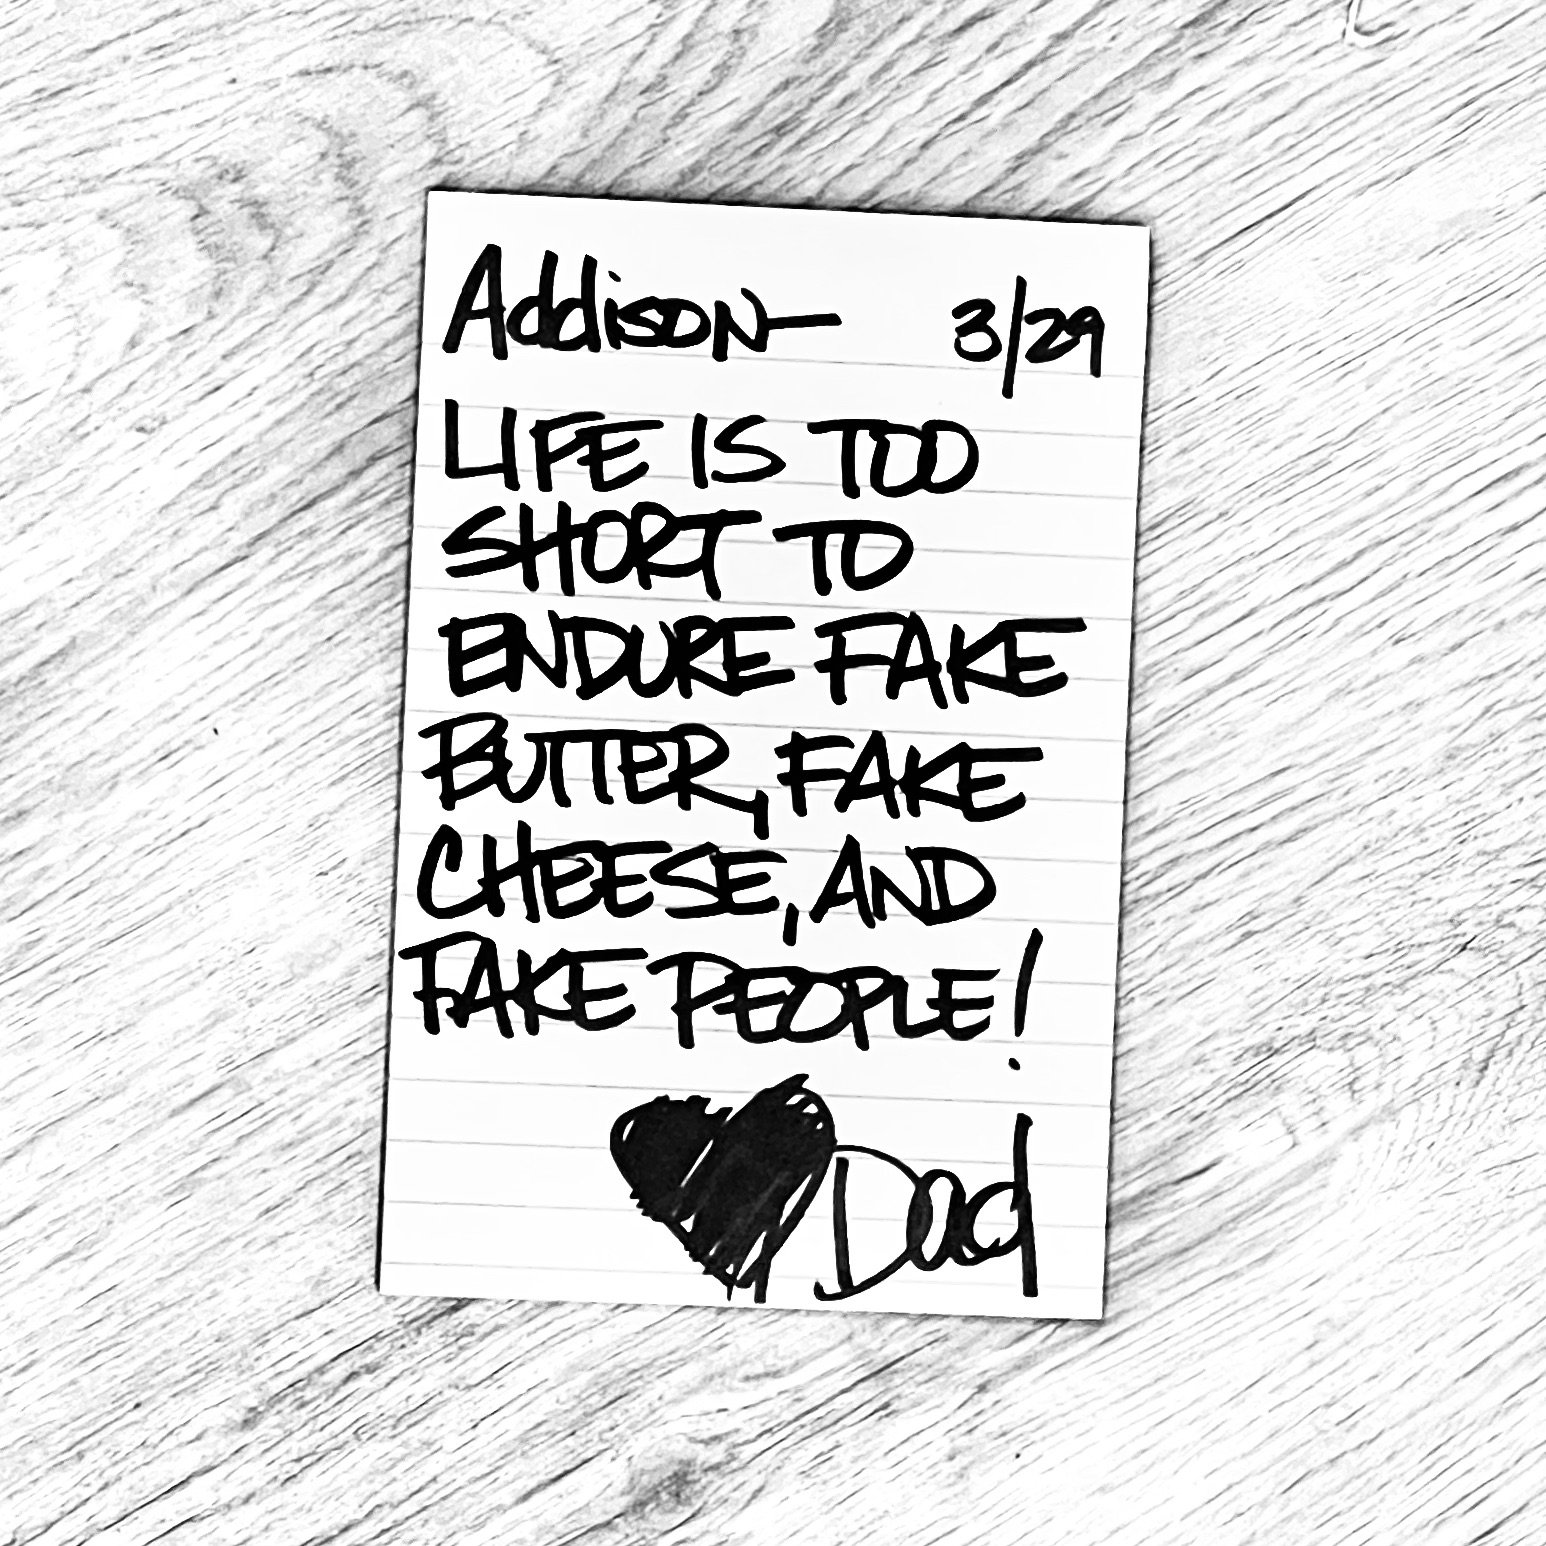 Addison— 3/29
LIFE IS TOO
SHORT TO
ENDURE FAKE
BUTTER, FAKE
CHEESE, AND
FAKE PEOPLE!
Dad